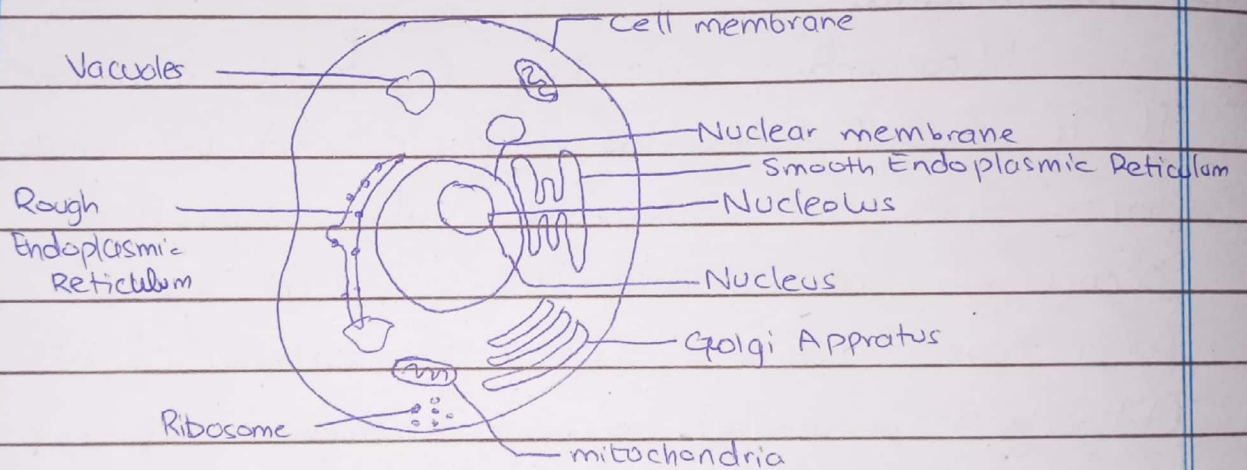 Cell membrane
Vacuoles
Nuclear membrane
Smooth Endoplasmic Reticulum
Rough
Nucleolus
Endoplasmic
Reticulum
Nucleus
Golgi Appratus
Ribosome
mitochondria